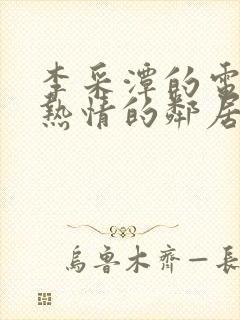 李采潭的電
熱情的鄰居
烏魯木齊—長